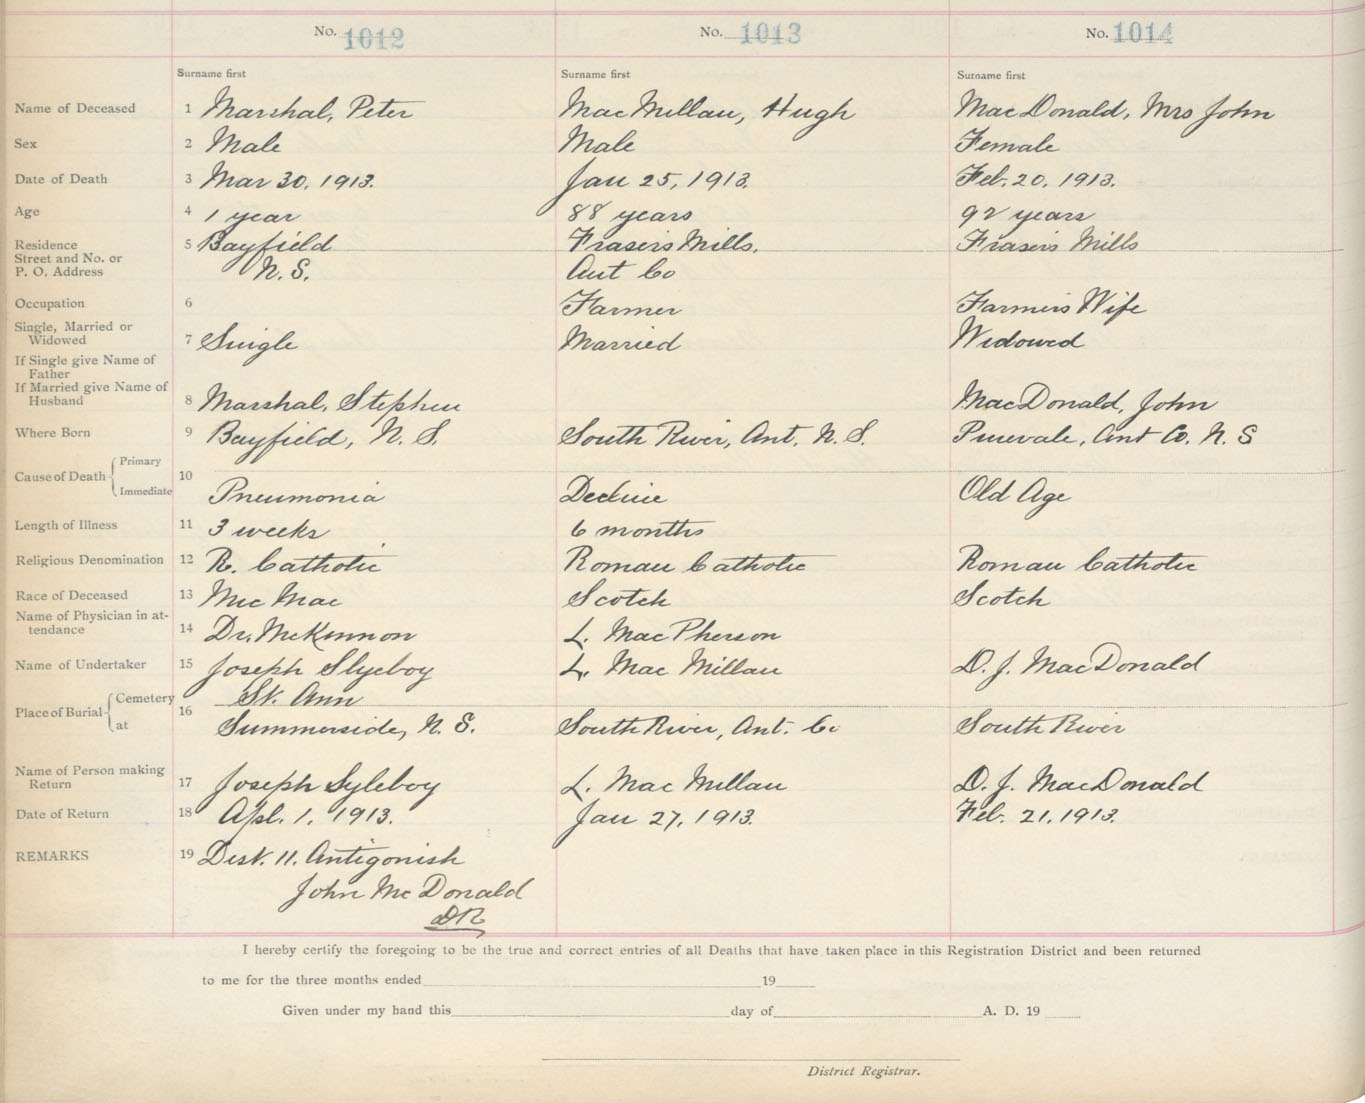 No. 1012 No. 1013 No. 1014
Surname first Surname first Surname first
Name of Deceased 1 Marshal, Peter MacMillan, Hugh MacDonald, Mrs John
Sex 2 Male Male Female
Date of Death 3 Mar 30, 1913. Jan 25, 1913. Feb. 20, 1913.
Age 4 1 year 88 years 92 years
Residence 5 Bayfield Frasers Mills. Frasers Mills
Street and No. or
P. O. Address N. S. Ant Co
Occupation 6 Farmer Farmers Wife
Single, Married or
Widowed 7 Single Married Widowed
If Single give Name of
Father
If Married give Name of
Husband 8 Marshal, Stephen MacDonald, John
Where Born 9 Bayfield, N. S. South River, Ant. N. S. Pinevale, Ant Co. N. S
Cause of Death Primary 10
Immediate Pneumonia Decline Old Age
Length of Illness 11 3 weeks 6 months
Religious Denomination 12 R. Catholic Roman Catholic Roman Catholic
Race of Deceased 13 Mic Mac Scotch Scotch
Name of Physician in at-
tendance 14 Dr. McKinnon L. MacPherson
Name of Undertaker 15 Joseph Slyeboy L. MacMillan D. J. MacDonald
Place of Burial Cemetery 16 St. Ann
at Summerside, N. S. South River, Ant. Co South River
Name of Person making
Return 17 Joseph Syleboy L. MacMillan D. J. MacDonald
Date of Return 18 Apl. 1, 1913. Jan 27, 1913. Feb. 21, 1913.
REMARKS 19 Dist. 11. Antigonish
John McDonald
DR
I hereby certify the foregoing to be the true and correct entries of all Deaths that have taken place in this Registration District and been returned
to me for the three months ended 19
Given under my hand this day of A. D. 19
District Registrar.